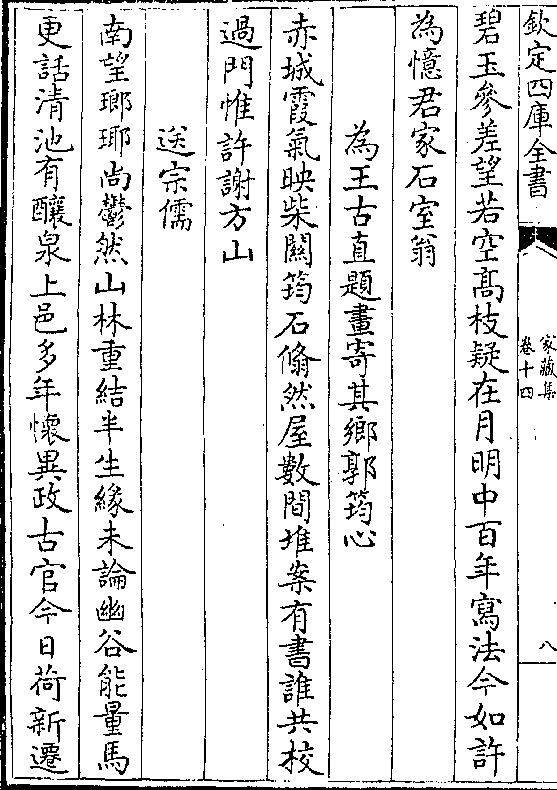 欽定四庫全書
家藏集
卷十四
八
碧玉參差望若空髙枝疑在月明中百年寫法今如許
為憶君家石室翁
為王古直題畫寄其鄉郭筠心
赤城霞氣映柴關筠石翛然屋數間堆案有書誰共校
過門惟許謝方山
送宗儒
南望瑯琊尚鬱然山林重結半生緣未論幽谷能量馬
更話清池有釀泉上邑多年懷異政古官今日荷新遷